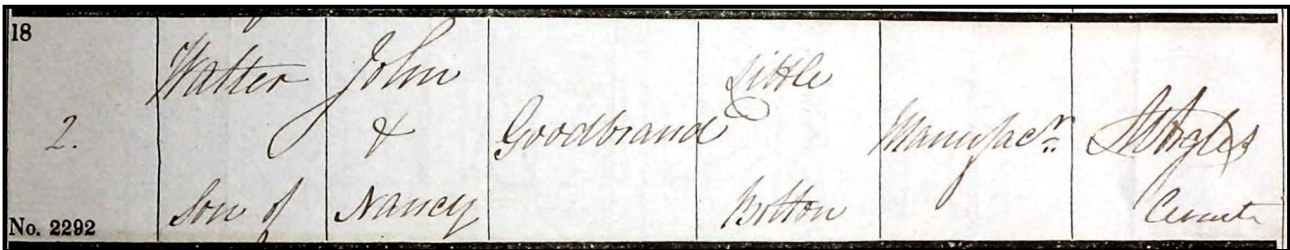 18
2.
No. 2292
Walter
Son of
John
&
Nancy
Goodbrand
Little
Bolton
Manufacr.
Curate